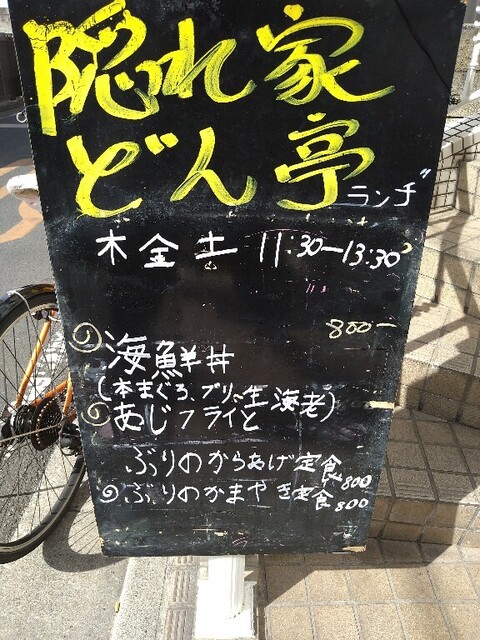 隠れ家
どん亭
ランチ
木金土 11:30-13:30
800-
海鮮丼
(本まぐろ、ブリ、生海老)
あじフライと
ぶりのからあげ定食 800
ぶりのかまやき定食 800